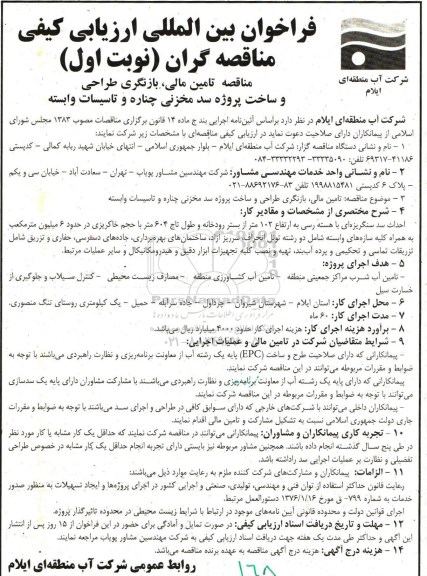 فراخوان بین المللی ارزیابی کیفی
مناقصه گران (نوبت اول)
مناقصه تامین مالی، بازنگری طراحی
و ساخت پروژه سد مخزنی چناره و تاسیسات وابسته
شرکت آب منطقه‌ای
ایلام
شرکت آب منطقه‌ای ایلام در نظر دارد براساس آئین‌نامه اجرایی بند ج ماده ۱۲ قانون برگزاری مناقصات مصوب ۱۳۸۳ مجلس شورای
اسلامی از پیمانکاران دارای صلاحیت دعوت نماید در ارزیابی کیفی مناقصه‌ای با مشخصات زیر شرکت نمایند:
۱ - نام و نشانی دستگاه مناقصه گزار: شرکت آب منطقه‌ای ایلام - بلوار جمهوری اسلامی - انتهای خیابان شهید ربابه کمالی - کدپستی
۶۹۳۱۷-۴۱۱۸۶ تلفن: ۳۳۳۳۵۰۹۰- ۳۳۳۳۲۲۹۳-۰۸۴
۲ - نام و نشانی واحد خدمات مهندسی مشاور: شرکت مهندسین مشاور پویاب - تهران - سعادت آباد - خیابان سی و یکم
- پلاک ۶ کدپستی ۱۹۹۸۸۱۵۴۸۱ تلفن ۸۳-۸۸۶۹۲۱۷۶-۰۲۱
۳ - موضوع مناقصه: تامین مالی، بازنگری طراحی و ساخت پروژه سد مخزنی چناره و تاسیسات وابسته
۴ - شرح مختصری از مشخصات و مقادیر کار:
احداث سد سنگریزه‌ای با هسته رسی به ارتفاع ۱۰۲ متر از بستر رودخانه و طول تاج ۶۰۴ متر با حجم خاکریزی در حدود ۶ میلیون مترمکعب
به همراه کلیه سازه‌های وابسته شامل دو رشته تونل انحراف، سرریز آزاد، ساختمان‌های بهره‌برداری، جاده‌های دسترسی، حفاری و تزریق شامل
تزریقات تماسی و تحکیمی و پرده آب‌بند، تهیه و نصب کلیه تجهیزات ابزار دقیق و هیدرومکانیکال و سایر عملیات مرتبط.
۵ - هدف اجرای پروژه:
- تامین آب شرب مراکز جمعیتی منطقه - تامین آب کشاورزی منطقه - مصارف زیست محیطی - کنترل سیلاب و جلوگیری از
خسارت سیل
۶ - محل اجرای کار: استان ایلام - شهرستان شیروان - چرداول - جاده سرابله - حمیل - یک کیلومتری روستای تنگ منصوری.
۷ - مدت اجرای کار: ۶۰ ماه
۸ - برآورد هزینه اجرای کار: هزینه اجرای کار حدود ۴۰۰۰ میلیارد ریال می‌باشد.
۹ - شرایط متقاضیان شرکت در تامین مالی و عملیات اجرایی:
- پیمانکارانی که دارای صلاحیت طرح و ساخت (EPC) پایه یک رشته آب از معاونت برنامه‌ریزی و نظارت راهبردی می‌باشند با توجه به
ضوابط و مقررات مربوطه می‌توانند در این مناقصه شرکت نمایند.
پیمانکارانی که دارای پایه یک رشته آب از معاونت برنامه‌ریزی و نظارت راهبردی می‌باشند با مشارکت مشاوران دارای پایه یک سدسازی
می‌توانند با توجه به ضوابط و مقررات مربوطه در این مناقصه شرکت نمایند.
- پیمانکاران داخلی می‌توانند با شرکت‌های خارجی که دارای سوابق کافی در طراحی و اجرای سد می‌باشند با توجه به ضوابط و مقررات
جاری دولت جمهوری اسلامی نسبت به تشکیل مشارکت و تامین مالی اقدام نمایند.
۱۰ - تجربه کاری پیمانکاران و مشاوران: پیمانکارانی می‌توانند در مناقصه شرکت نمایند که حداقل یک کار مشابه یا کار مورد نظر
در طی پنج سال گذشته انجام داده باشند. همچنین مشاور مربوطه نیز بایستی دارای تجربه انجام حداقل یک کار مشابه در خصوص طراحی
تفصیلی و نظارت بر عملیات اجرایی سد را داشته باشد.
۱۱ - الزامات: پیمانکاران و مشارکت‌های شرکت کننده ملزم به رعایت موارد ذیل می‌باشند:
رعایت قانون حداکثر استفاده از توان فنی و مهندسی، تولیدی، صنعتی و اجرایی کشور در اجرای پروژه‌ها و ایجاد تسهیلات به منظور صدور
خدمات به شماره ۷۹۹- ق مورخ ۱۳۷۶/۱/۱۶ دستورالعمل مرتبط.
اجرای قوانین دولت و محدوده قانونی آیین نامه‌های موجود در ارتباط با شرایط زیست محیطی در محدوده تاثیرگذار پروژه.
۱۲ - مهلت و تاریخ دریافت اسناد ارزیابی کیفی: در صورت تمایل و آمادگی برای حضور در این فراخوان از ۱۵ روز پس از انتشار
این آگهی و حداکثر طی مدت یک هفته جهت دریافت اسناد ارزیابی کیفی به شرکت مهندسین مشاور پویاب مراجعه نمایند.
۱۳ - هزینه درج آگهی: هزینه درج آگهی مناقصه به عهده برنده مناقصه می‌باشد.
روابط عمومی شرکت آب منطقه‌ای ایلام
۱۶۸